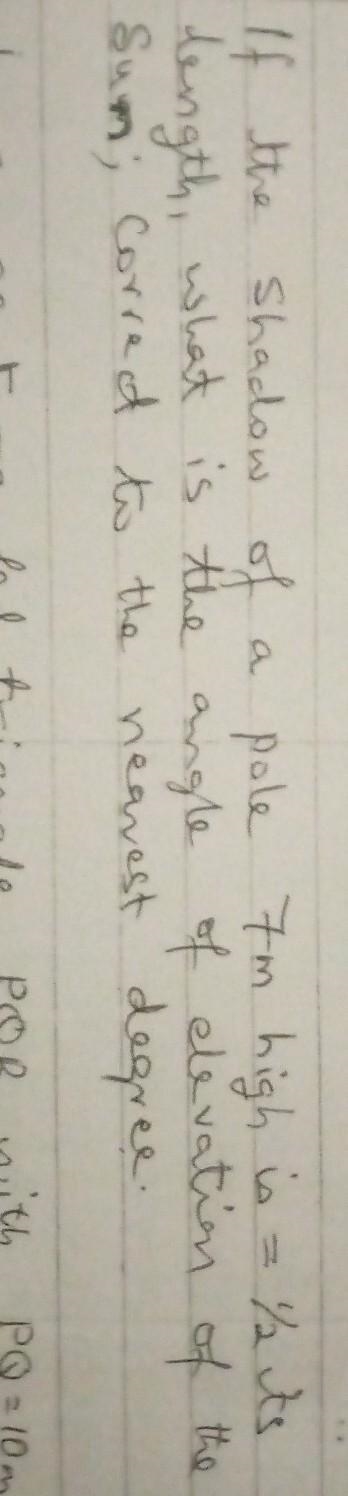 If the shadow of a pole 7m high is = ½ its
length, what is the angle of elevation of the
Sum; Correct to the nearest degree.
triangle PQR with PQ = 10m